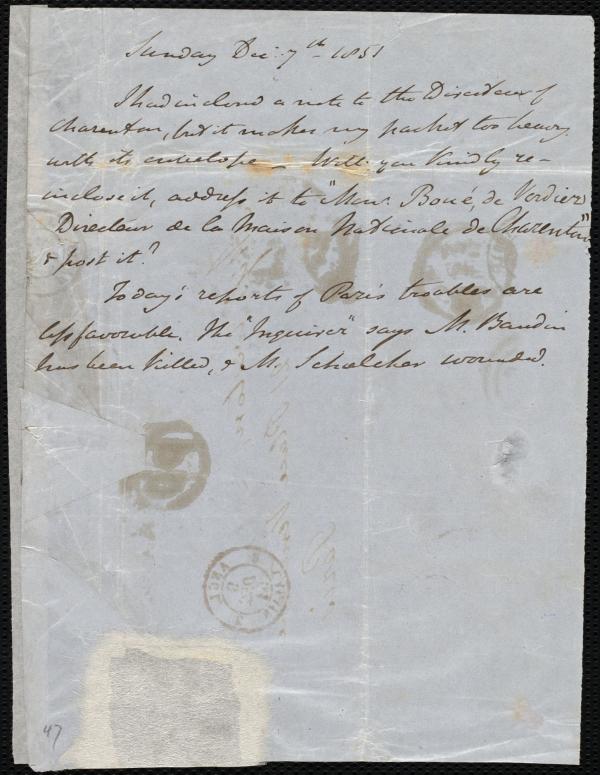 Sunday Dec: 7th 1851
I had inclosed a note to the Directeur of
Charenton, but it makes my packet too heavy
with its envelope. Will you kindly re-
inclose it, address it to "Monr. Boué, de Verdier,
Directeur de la Maison Nationale de Charenton"
& post it?
Today's reports of Paris troubles are
less favourable. The "Inquirer" says M. Baudin
has been killed, & M. Schœlcher wounded.
47